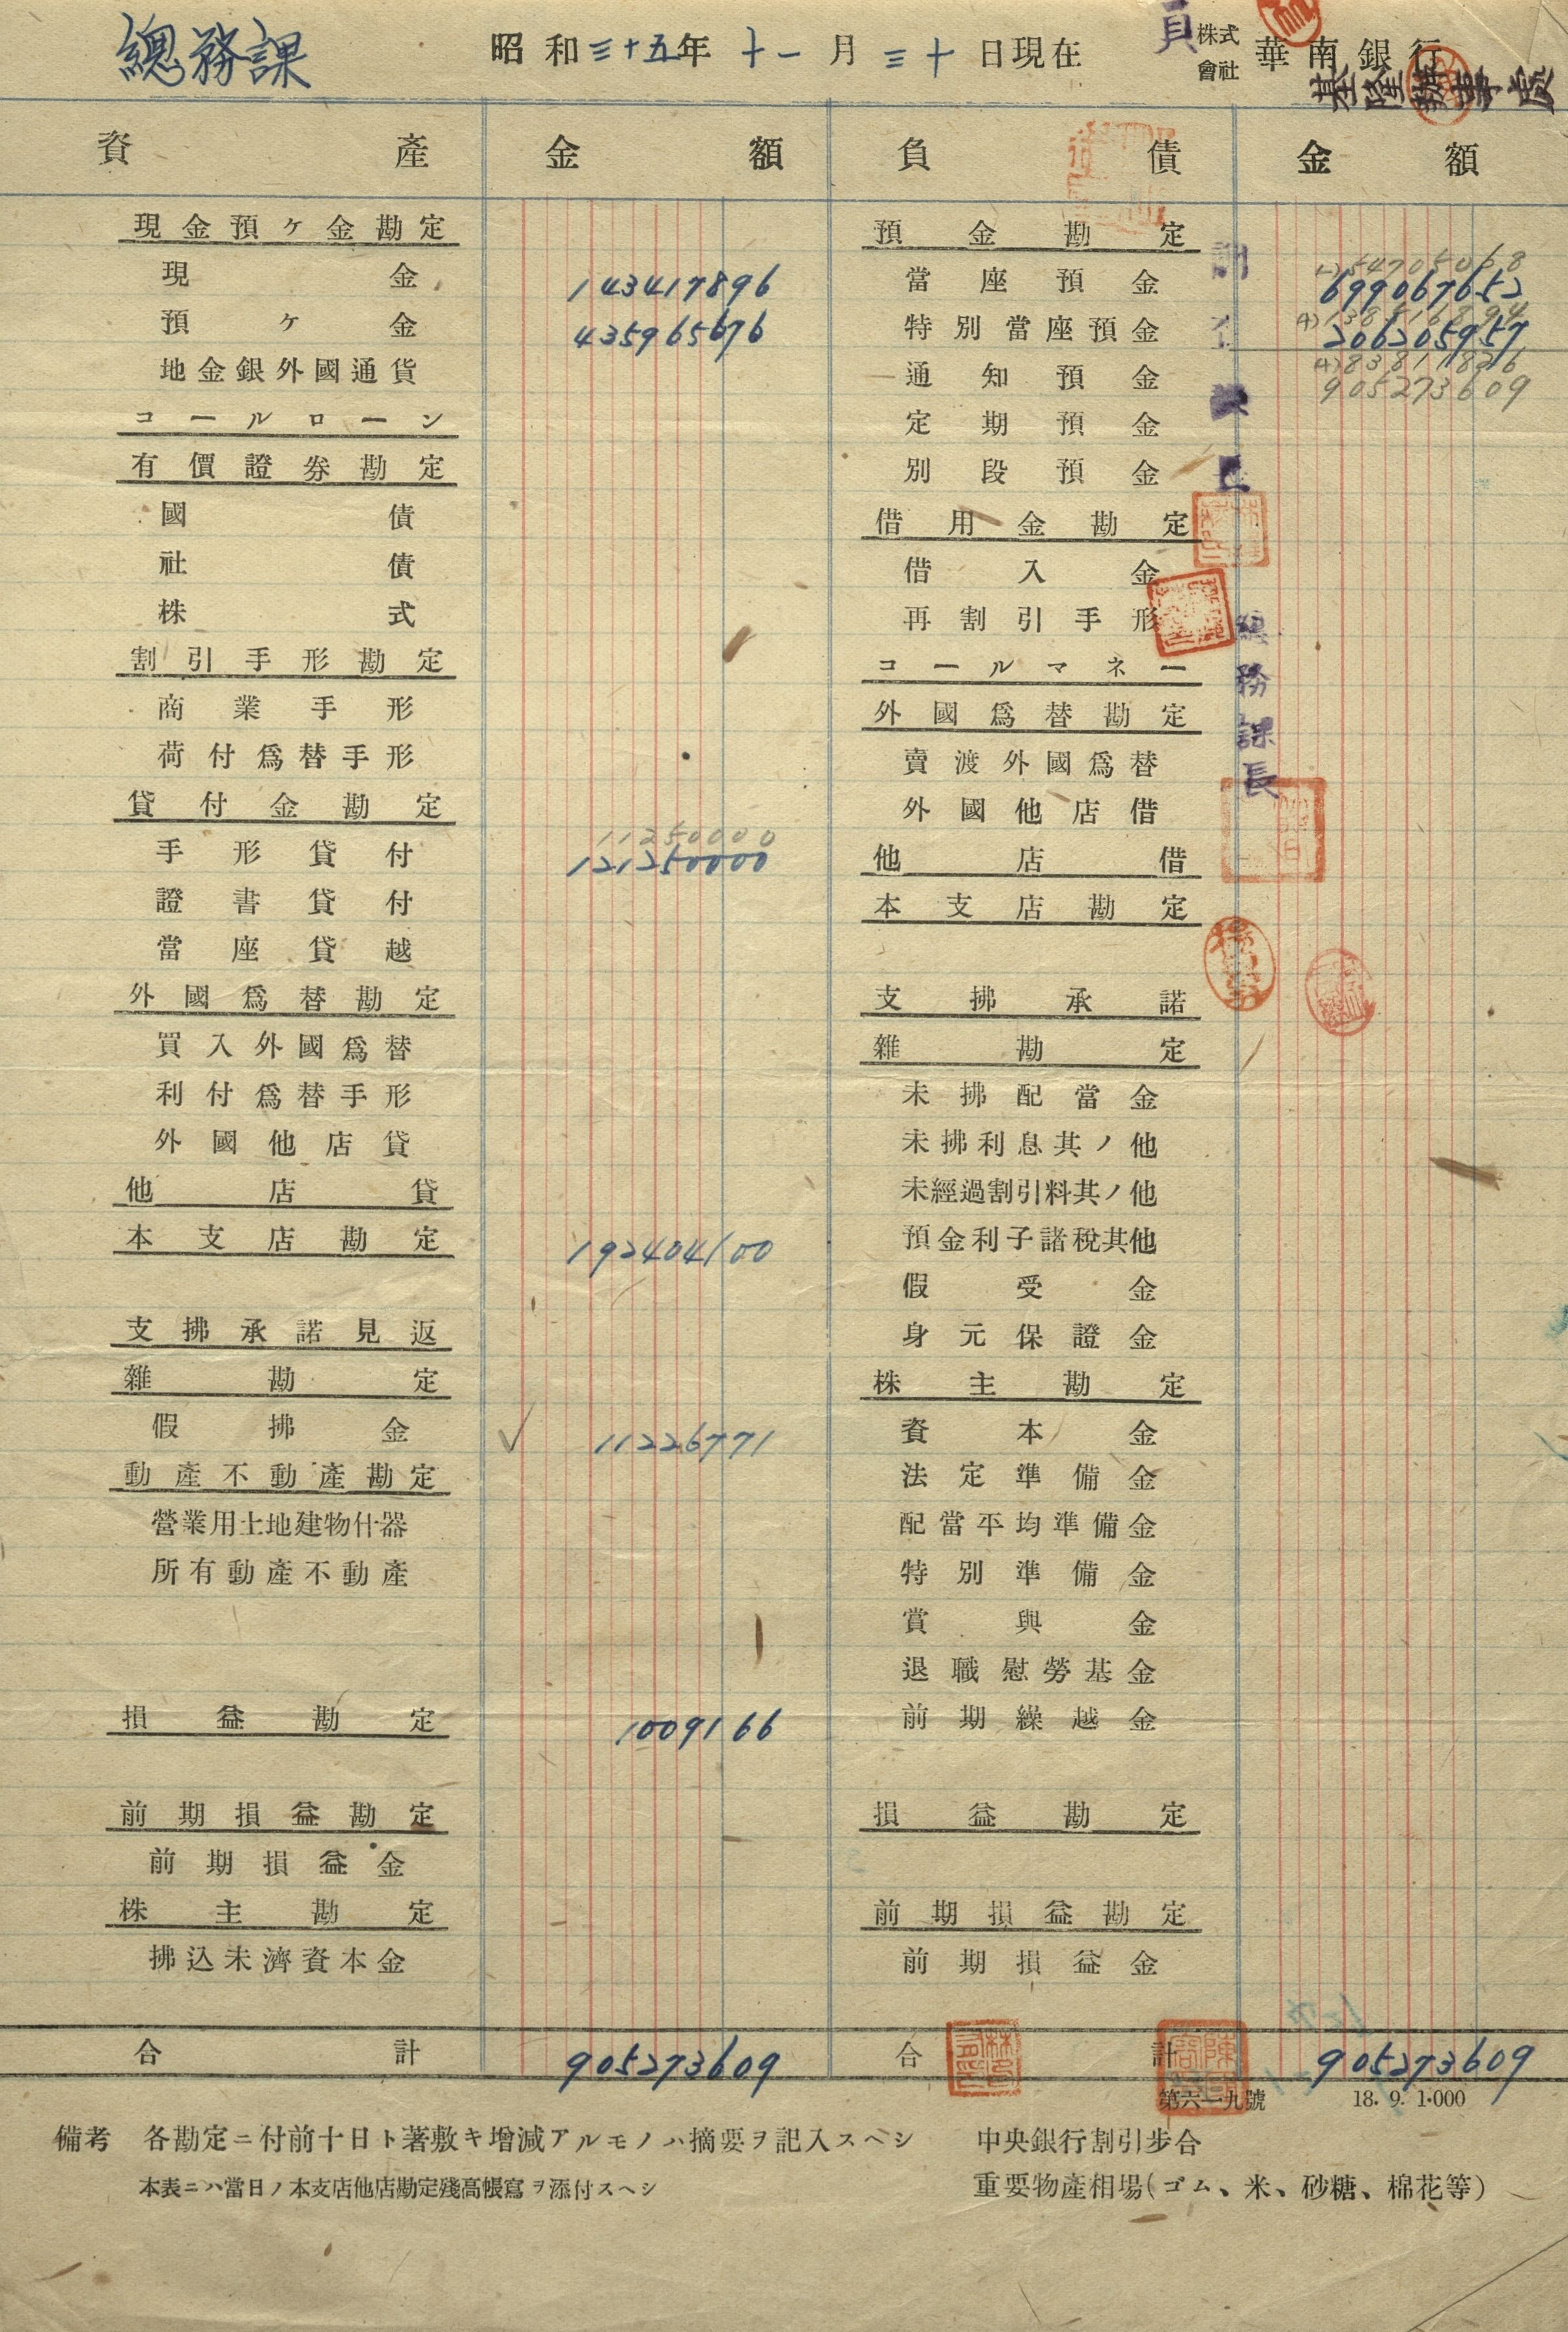 總務課
昭和三十五年十一月三十日現在
株式會社 華南銀行
基隆辦事處
資產 金額 負債 金額
現金預ケ金勘定
現金 143417896
預ケ金 435965676
地金銀外國通貨
コールローン
有價證券勘定
國債
社債
株式
割引手形勘定
商業手形
荷付爲替手形
貸付金勘定
11250000
手形貸付 121250000
證書貸付
當座貸越
外國爲替勘定
買入外國爲替
利付爲替手形
外國他店貸
他店貸
本支店勘定 192404100
支拂承諾見返
雜勘定
假拂金 ✓ 11226771
動產不動產勘定
營業用土地建物什器
所有動產不動產
損益勘定 1009166
前期損益勘定
前期損益金
株主勘定
拂込未濟資本金
合計 905273609
預金勘定
當座預金 699067652
特別當座預金 206205957
通知預金 905273609
定期預金
別段預金
借用金勘定
借入金
再割引手形
コールマネー
外國爲替勘定
賣渡外國爲替
外國他店借
他店借
本支店勘定
支拂承諾
雜勘定
未拂配當金
未拂利息其ノ他
未經過割引料其ノ他
預金利子諸稅其他
假受金
身元保證金
株主勘定
資本金
法定準備金
配當平均準備金
特別準備金
賞與金
退職慰勞基金
前期繰越金
損益勘定
前期損益勘定
前期損益金
合計 905273609
總務課長
第六一九號 18. 9. 1·000
備考 各勘定ニ付前十日ト著敷キ增減アルモノハ摘要ヲ記入スヘシ
本表ニハ當日ノ本支店他店勘定殘高帳寫ヲ添付スヘシ
中央銀行割引步合
重要物產相場(ゴム、米、砂糖、棉花等)